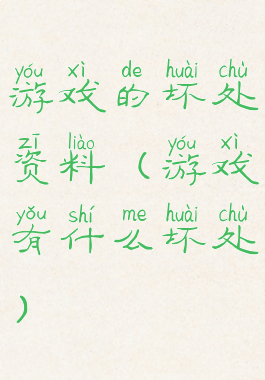 yóu xì de huài chù
游戏的坏处
zī liào yóu xì
资料（游戏
yǒu shí me huài chù
有什么坏处
）